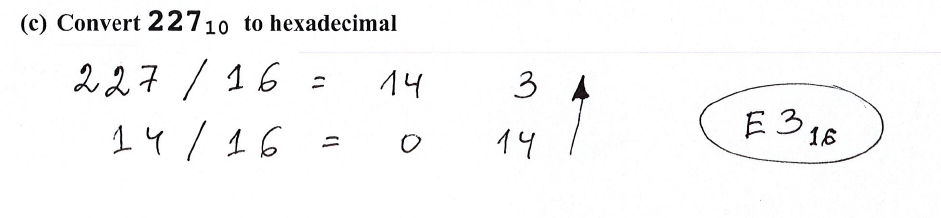 (c) Convert 227₁₀ to hexadecimal
227 / 16 = 14 3
14 / 16 = 0 14
E3₁₆